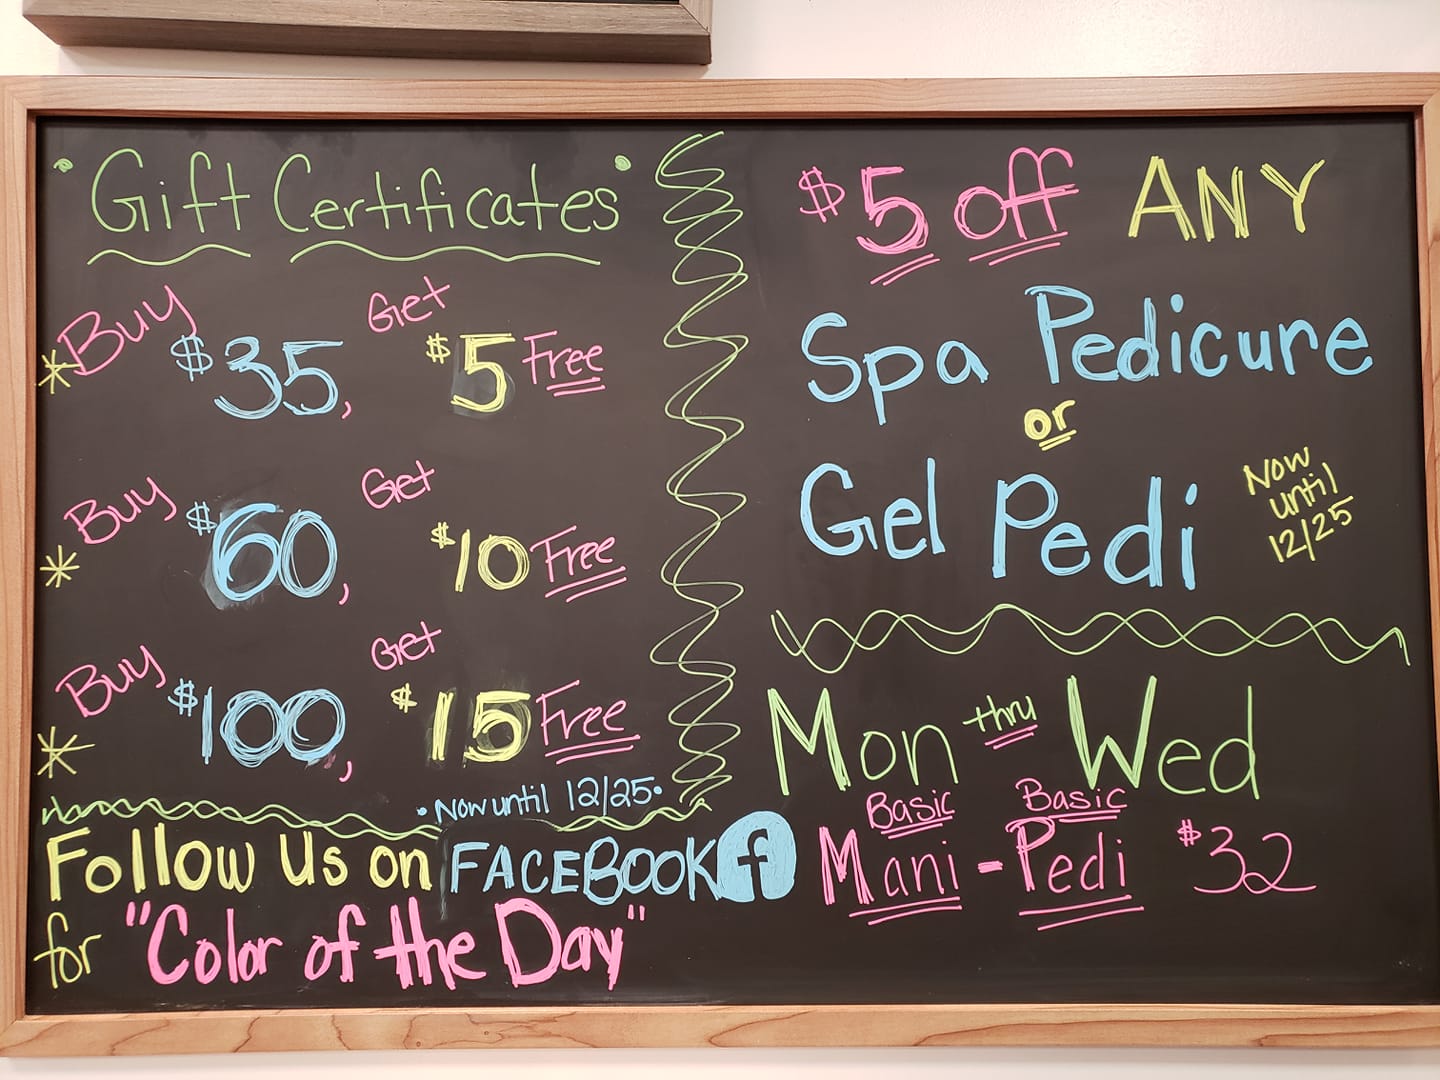 "Gift Certificates"
* Buy $35, Get $5 Free
* Buy $60, Get $10 Free
* Buy $100, Get $15 Free
• Now until 12/25•
Follow Us on FACEBOOK f
for "Color of the Day"
$5 off ANY
Spa Pedicure
or
Gel Pedi
Now
until
12/25
Mon thru Wed
Basic Basic
Mani - Pedi $32